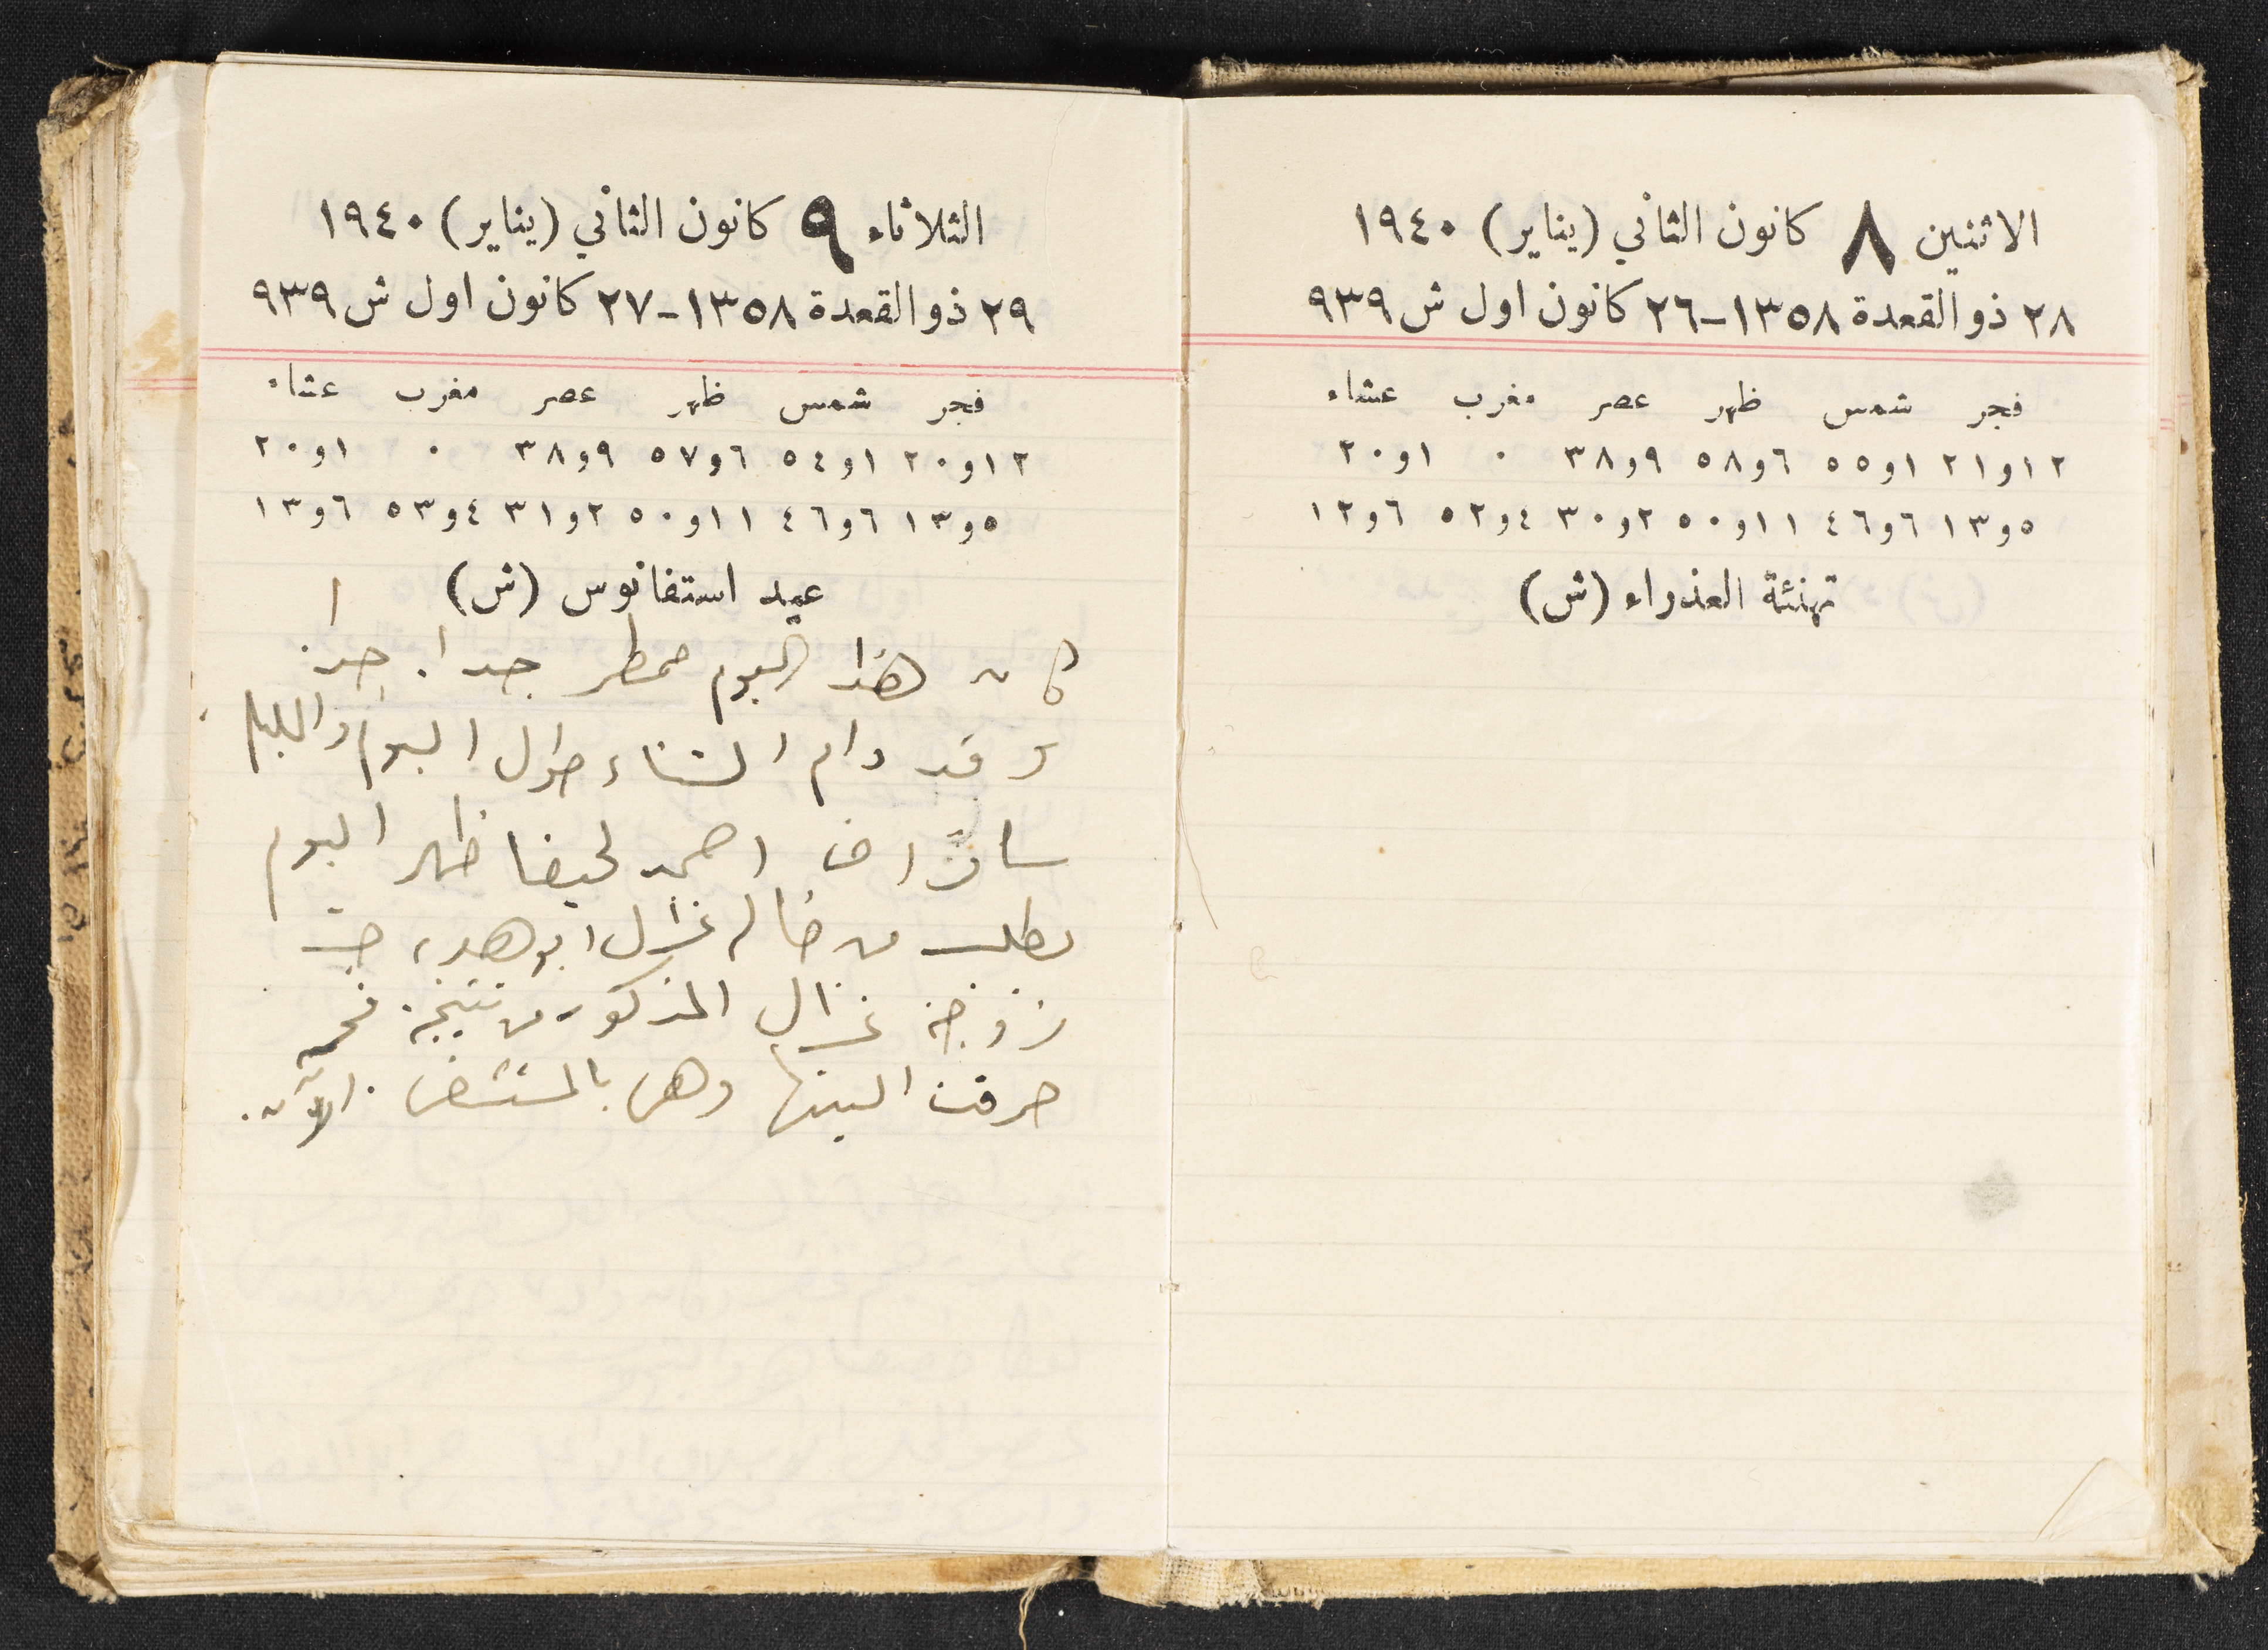 الاثنين ٨ كانون الثاني (يناير) ١٩٤٠
٢٨ ذو القعدة ١٣٥٨-٢٦ كانون اول ش ٩٣٩
فجر شمس ظهر عصر مغرب عشاء
١٢و٢١ ١و٥٥ ٦و٥٨ ٩و٣٨ ٠ ١و٢٠
٥و١٣ ٦و٤٦ ١١و٥٠ ٢و٣٠ ٤و٥٢ ٦و١٢
تهنئة العذراء (ش)
الثلاثاء ٩ كانون الثاني (يناير) ١٩٤٠
٢٩ ذو القعدة ١٣٥٨-٢٧ كانون اول ش ٩٣٩
فجر شمس ظهر عصر مغرب عشاء
١٢و٢٠ ١و٥٤ ٦و٥٧ ٩و٣٨ ٠ ١و٢٠
٥و١٣ ٦و٤٦ ١١و٥٠ ٢و٣١ ٤و٥٣ ٦و١٣
عيد استفانوس (ش)
كان هذا اليوم ممطر جدا. جدا
وقد دام الشتاء طول اليوم والليل
سافر اخي احمد لحيفا ظهر اليوم
بطلب من خاله غزال ابو
زوجة غزال المذكور من نتيجة
حرقت وهي بالمستشفى الآن.